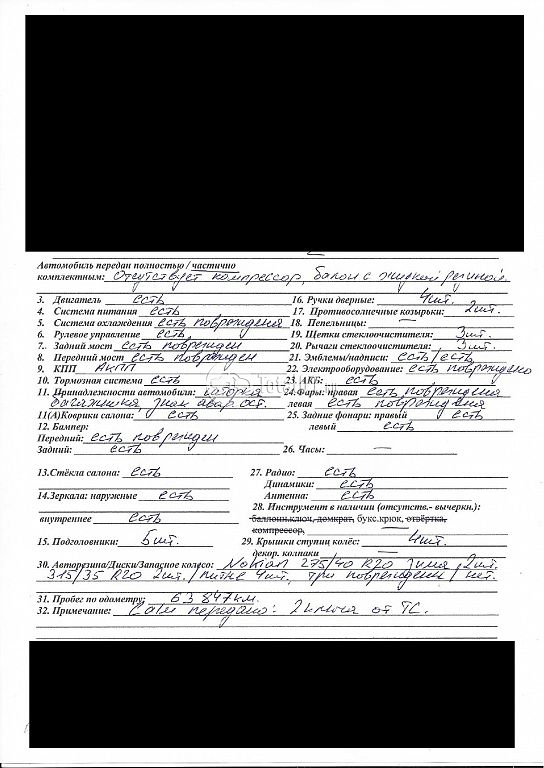 Автомобиль передан полностью / частично
комплектным: Отсутствует компрессор, балон с жидкой резиной.
3. Двигатель есть 16. Ручки дверные: 4шт.
4. Система питания есть 17. Противосолнечные козырьки: 2шт.
5. Система охлаждения есть повреждена 18. Пепельницы: —
6. Рулевое управление есть, 19. Щетки стеклоочистителя: 3шт.
7. Задний мост есть поврежден 20. Рычаги стеклоочистителя: 3шт.
8. Передний мост есть поврежден 21. Эмблемы/надписи: есть/есть
9. КПП АКПП 22. Электрооборудование: есть повреждено
10. Тормозная система есть 23. АКБ: есть
11. Принадлежности автомобиля: шторка 24. Фары: правая есть повреждена
багажника знак авар ост. левая есть повреждена
11(А)Коврики салона: есть 25. Задние фонари: правый есть
12. Бампер: левый есть
Передний: есть поврежден
Задний: есть 26. Часы: —
13.Стёкла салона: есть 27. Радио: есть
Динамики: есть
14.Зеркала: наружные есть Антенна: есть
28. Инструмент в наличии (отсутств.- вычеркн.):
внутреннее есть баллонн.ключ, домкрат, букс.крюк, отвёртка,
компрессор,
15. Подголовники: 5шт. 29. Крышки ступиц колёс: 4шт.
декор. колпаки —
30. Авторезина/Диски/Запасное колесо: Nokian 275/40 R20 зима, 2шт.
315/35 R20 2шт./литые 4шт, три повреждены/нет.
31. Пробег по одометру: 63 847км.
32. Примечание: передано: 2 ключа от ТС.